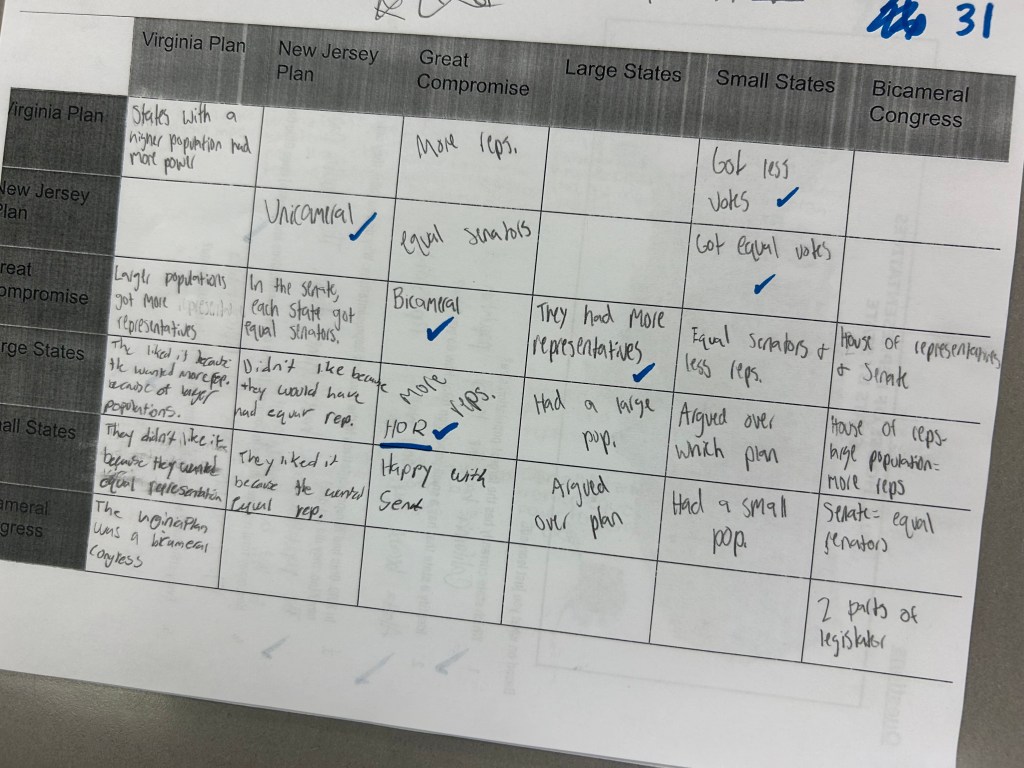 31
Virginia Plan
New Jersey
Plan
Great
Compromise
Large States
Small States
Bicameral
Congress
Virginia Plan
States with a
higher population had
more power
More reps.
Got less
votes
New Jersey
Plan
Unicameral
equal senators
Got equal votes
reat
ompromise
Larger populations
got more
representatives
In the senate,
each state got
equal senators.
Bicameral
They had more
representatives
Equal senators &
less reps.
House of representatives
& Senate
rge States
The liked it because
the wanted more rep.
because of larger
populations.
Didn't like because
they would have
had equal rep.
More
reps.
HOR
Had a large
pop.
Argued over
which plan
House of reps-
large population=
more reps
all States
They didn't like it
because they wanted
equal representation
They liked it
because the wanted
equal rep.
Happy with
Argued
over plan
Had a small
pop.
Senate= equal
senators
ameral
gress
The Plan
was a bicameral
congress
2 parts of